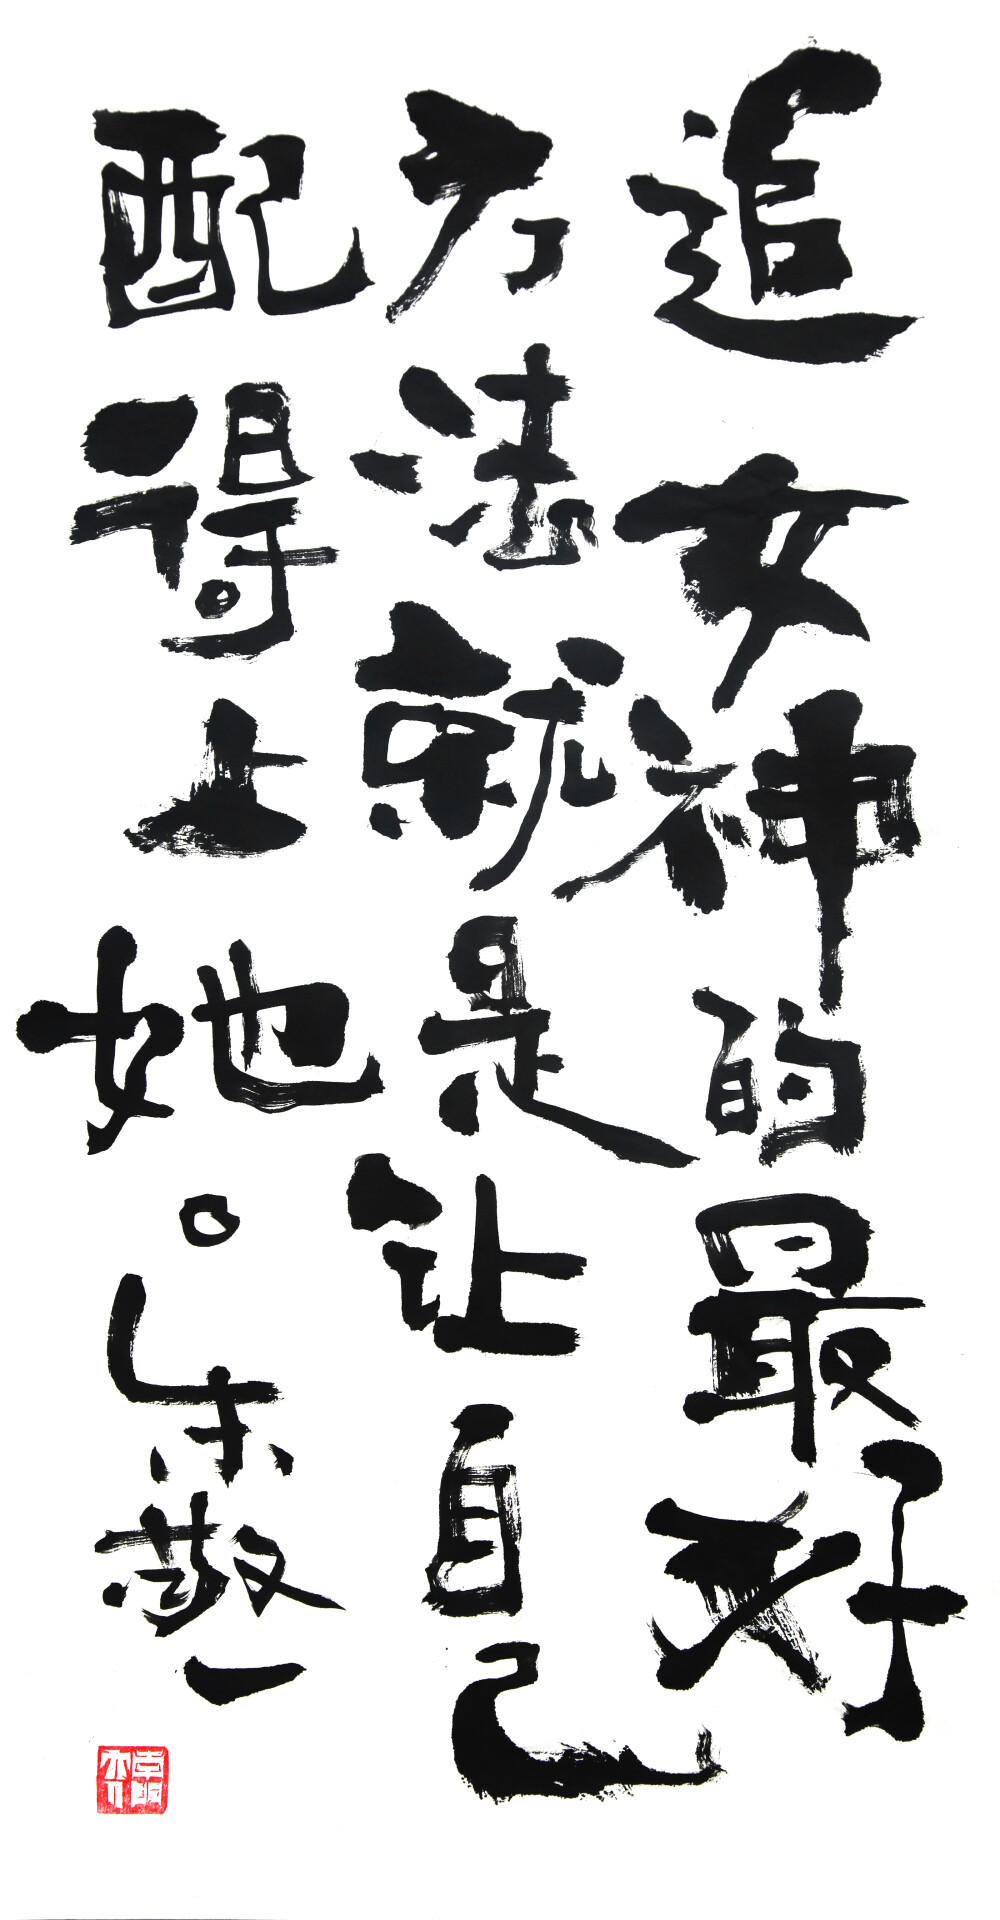 追女神的最好
方法就是让自己
配得上她。朱敬一